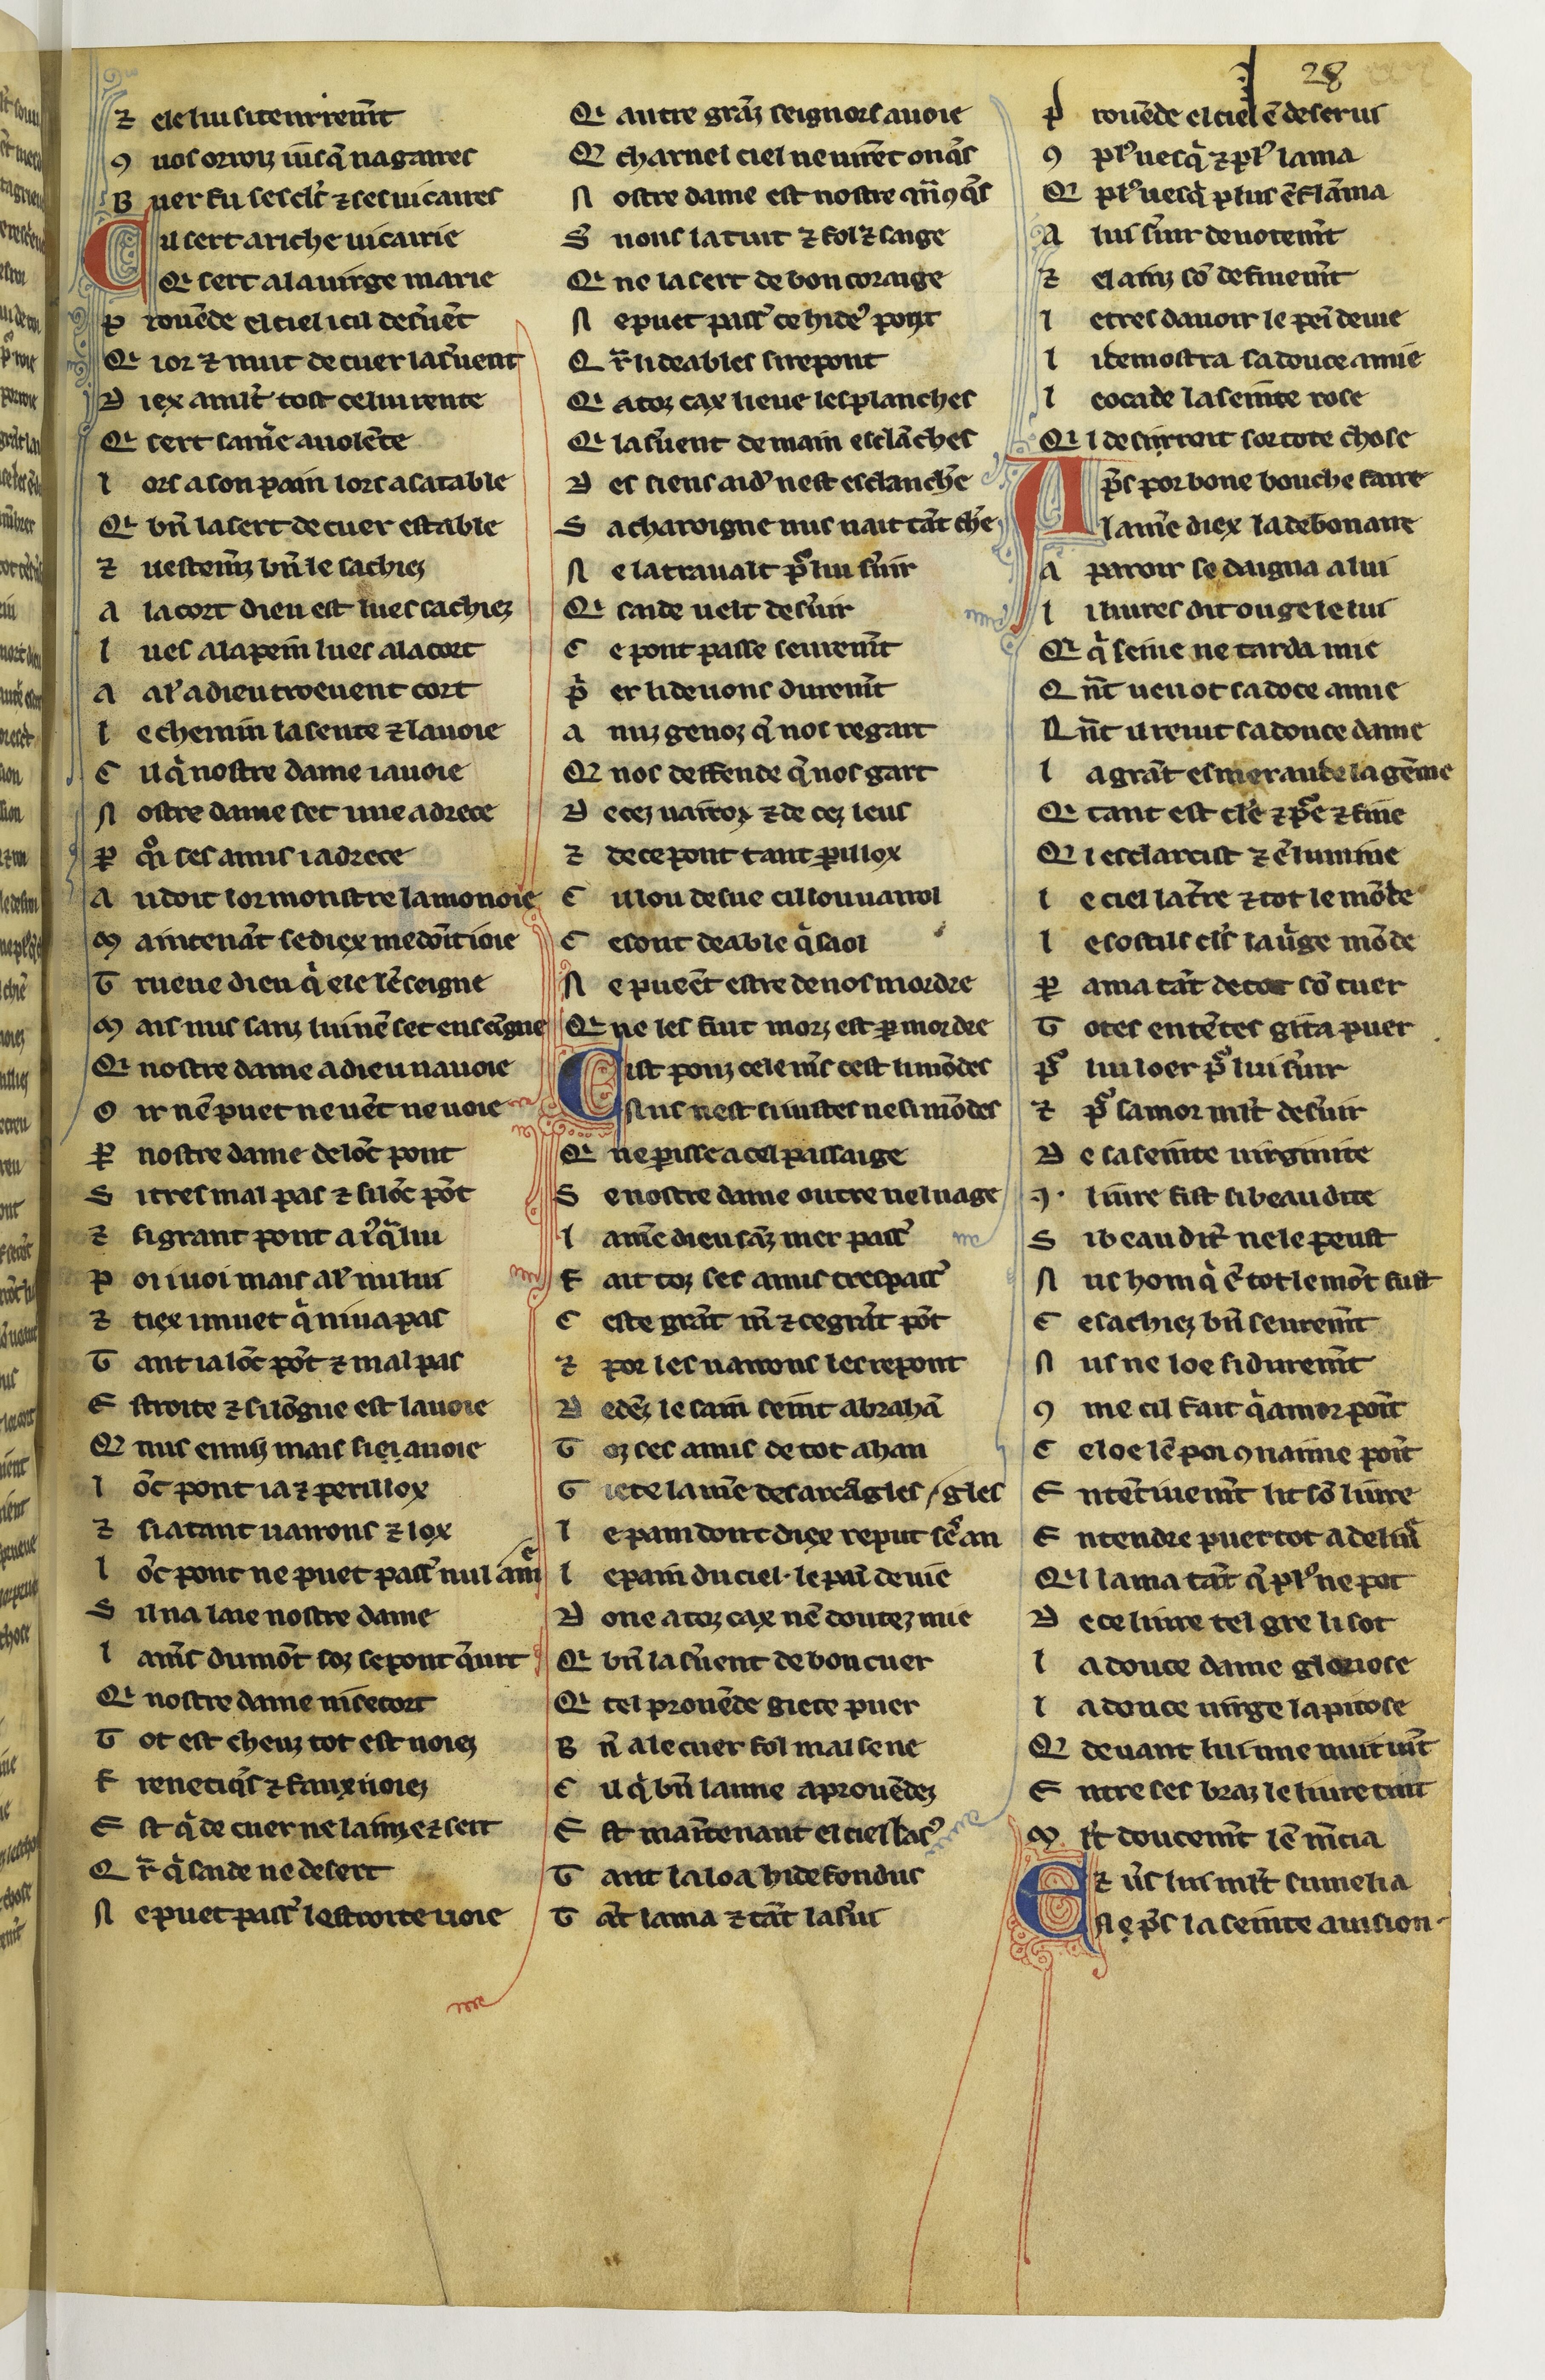 28
⁊ ele lui si tenrrem̃t
ꝯ uos orroiz iusq̃ na gaires
Buer fu ses clr̃c ⁊ ses uicaires
Cil sert a riche uicairie
Qi sert a la uirge marie
Prouẽde el ciel icil deseruẽt
Qi ior ⁊ nuit de cuer la s̃uent
Diex a mlt̃ tost celui rente
Qi sert sa mr̃e a uolẽte
lors a son pain lors a sa table
Qi bñ la sert de cuer estable
⁊ uestem̃z bñ le sachiez
a la cort dieu est lues sachiez
lues a la pein lues a la cort
a ar̃ a dieu troeuent cort
le chemin la sente ⁊ la uoie
Cil q̃ nostre dame i auoie
Nostre dame set une adrece
Par q̃i ses amis i adrece
a u doit lor monstre la monoie
Maintenãt se diex me dõit ioie
Trueue dieu q̃ ele lẽseigne
Mais nus sanz lui nẽ set enseigne
Qi nostre dame a dieu nauoie
Oir nẽ puet ne uẽt ne uoie
Par nostre dame de lõc pont
Si tres mal pas ⁊ si lõc põt
⁊ si grant pont a iusq̃ lui
Poi i uoi mais ar̃ nului
⁊ tiex i muet q̃ ni ua pas
Tant i a lõc põt ⁊ mal pas
Estroite ⁊ si lõgue est la uoie
Qi nus enuiz mais si ei auoie
lõc pont i a ⁊ perillox
⁊ si a tant uarrons ⁊ lox
lõc pont ne puet pass̃ nul ame
Sil na laie nostre dame
l anr̃s du mõt soz se pont q̃urt
Qi nostre dame ni secort
Tot est cheuz tot est noiez
freneticq̃s ⁊ faux uoiez
Est q̃ de cuer ne lainze ⁊ sert
Qr̃ q̃ saide ne desert
Ne puet pass̃ lestroite uoie
Qi autre grãz seignors auoie
Qi charnel ciel ne uirẽt onq̃s
Nostre dame est nostre qñꝯq̃s
Si nous la tuit ⁊ fol ⁊ saige
Qi ne la sert de bon coraige
Ne puet pass̃ ce hidẽ pont
Qr̃ li deables si repont
Qi a toz cax lieue les planches
Qi la s̃uent de main esclãches
Des siens aid̃ nest esclanchẽ
Sa charoigne nus nait tãt chẽ
Ne la traualt pr̃ lui s̃uir
Qi saide uelt des̃uir
Ce pont passe seurem̃t
Prier li deuons durem̃t
a nuz genoz q̃ nos regart
Qi nos deffende q̃ nos gart
De cez uarrox ⁊ de cez leus
⁊ de ce pont tant perillox
Cil lou desue cil lou uarrol
Ce sont deable q̃ saol
Ne pueẽt estre de nos mordre
Qi ne les fuit morz est par mordre
Cist ponz cele mr̃s cest li mõdes
Nus nest si iustes ne si mõdes
Qi ne perisse a cel passaige
Se nostre dame outre nel nage
l a mr̃e dieu sãz mer pass̃
fait toz ses amis trespass̃
Ceste grãt mr̃ ⁊ ce grãt põt
⁊ por les uarrons les repont
Dedẽz le sain seint abrahã
Toz ses amis de tot ahan
Giete la mr̃e des arcãgles / gles
le pain dont diex reput sẽ an
le pain du ciel · le pain de uie
Done a toz cax nẽ doutez mie
Qi bñ la s̃uent de bon cuer
Qi tel prouẽde giete puer
Bñ a le cuer fol mal sene
Cil q̃ bñ lainme a prouẽdez
Est maintenant el ciel lass̃
Tant la loa hidefondus
Tãt lama ⁊ tãt la s̃ui
Prouẽde el ciel ẽ deserui
ꝯ pl̃ uesq̃ ⁊ pl̃ lama
Qi pl̃ uesq̃ plus ẽflãma
A lui s̃uir deuotem̃t
⁊ el ainz sõ definem̃t
l etres dauoir le peĩ de uie
l i demostra sa douce amie
l eocade la seinte rose
Qi l desirroit sor tote chose
Apr̃s por bone bouche faire
la mr̃e diex la debonaire
a paroir se daigna a lui
l i liures dit ou ge le lui
Qi q̃ seine ne tarda mie
Qñt ueu ot sa doce amie
Qñt il reuit sa douce dame
l a grãt esmeraude la gẽme
Qi tant est clr̃e ⁊ pr̃e ⁊ fine
Qi esclarcist ⁊ ẽlumine
l e ciel lat̃re ⁊ tot le mõde
l e sostils clr̃s la uirge mõde
Par ama tãt de tot sõ cuer
Totes entẽtes gita puer
Pr̃ lui loer pr̃ lui s̃uir
⁊ pr̃ samor mlt̃ des̃uir
De sa seinte uirginite
.I. liure fist si beau dite
Si beau dit̃ ne le peust
Nus hom q̃ ẽ tot le mõt fust
Ce sachiez bñ seurem̃t
Nus ne loe si durem̃t
ꝯ me cil fait q̃ amor point
Celoe lẽ poi ꝯ nainme point
Entẽtiuem̃t lit sõ liure
Entendre puet tot a deliur̃
Qi lama tãt q̃ pl̃ ne pot
De ce liure tel gre li sot
l a douce dame gloriose
l a douce uirge la pitose
Qi deuant lui une nuit uĩt
Entre ses braz le liure tint
Ml̃t doucem̃t lẽ m̃cia
Et ũs lui mlt̃ sumelia
Nepr̃s la seinte auision·